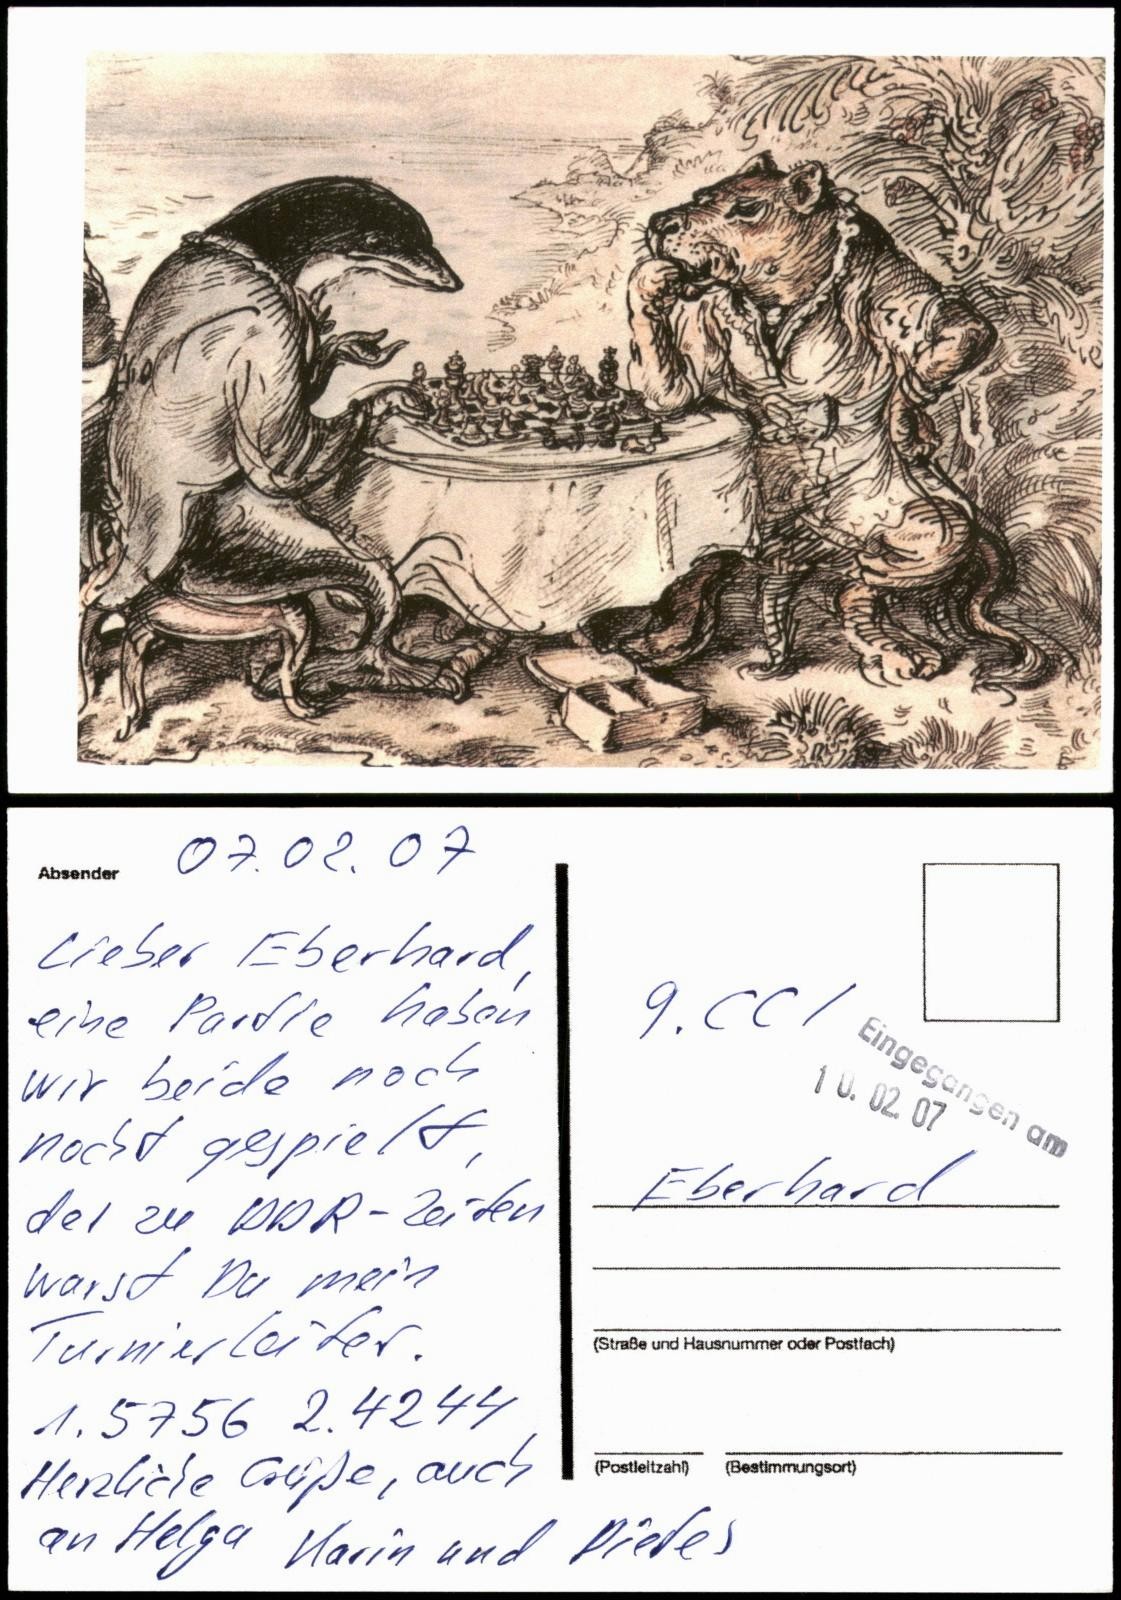 Absender
07.02.07
Lieber Eberhard,
eine Partie haben
wir beide noch
nocht gespielt,
der zu DDR-Zeiten
warst Du mein
Turnierleiter.
1.5756 2.4244
Herzliche Grüße, auch
an Helga Karin und Dieter
9. CCI
Eingegangen am
10. 02. 07
Eberhard
(Straße und Hausnummer oder Postfach)
(Postleitzahl) (Bestimmungsort)